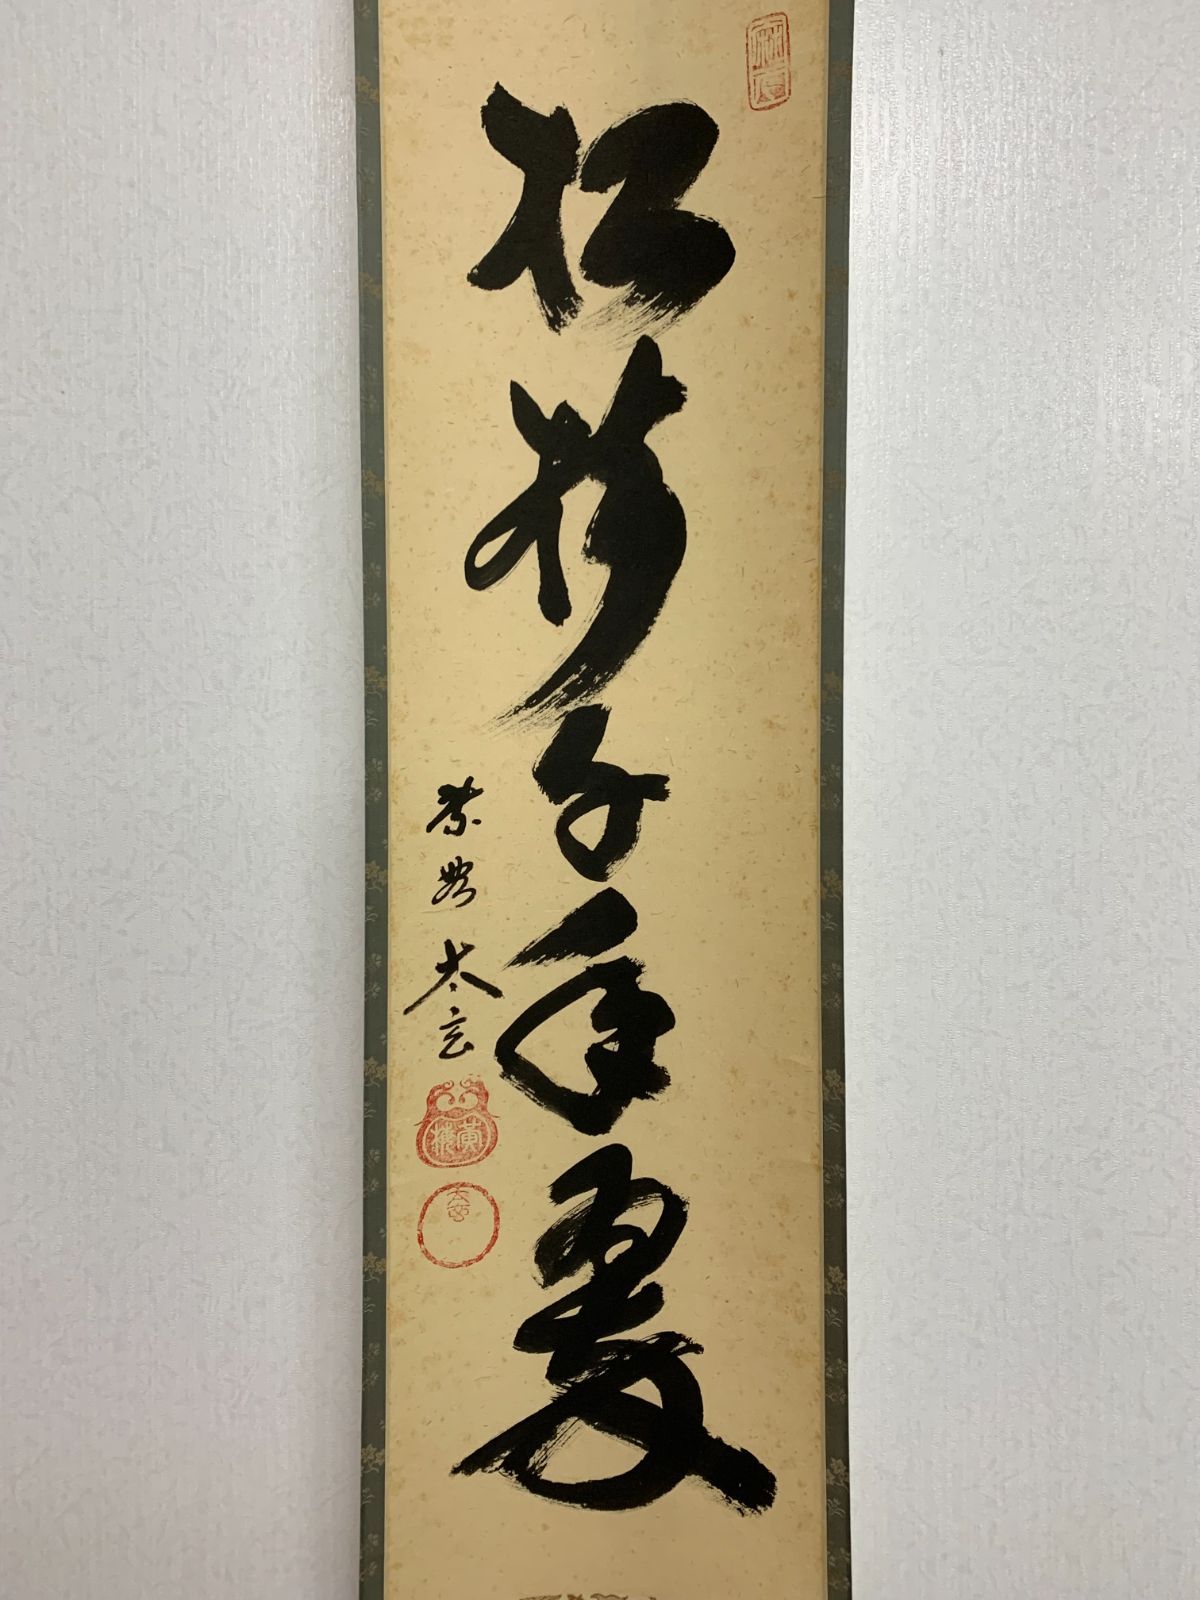 松樹千年翠
紫野 太玄
黄梅
太玄